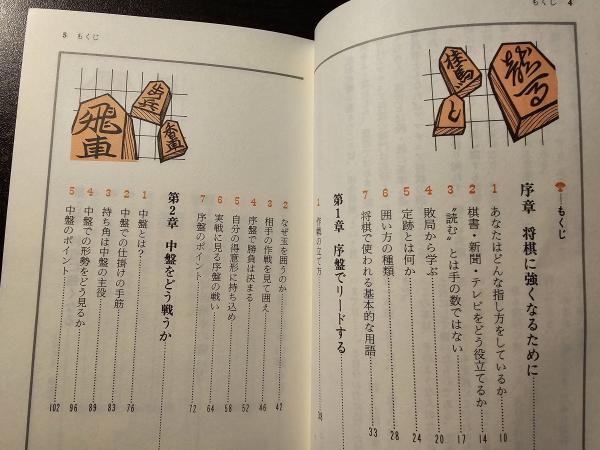 もくじ 4
龍馬
桂馬
と
もくじ
序章 将棋に強くなるために
1 あなたはどんな指し方をしているか……10
2 棋書・新聞・テレビをどう役立てるか……14
3 〝読む〟とは手の数ではない……17
4 敗局から学ぶ……20
5 定跡とは何か……24
6 囲い方の種類……28
7 将棋で使われる基本的な用語……33
第1章 序盤でリードする
1 作戦の立て方……38
5 もくじ
歩兵
香車
飛車
2 なぜ玉を囲うのか……42
3 相手の作戦を見て囲え……46
4 序盤で勝負は決まる……52
5 自分の得意形に持ち込め……58
6 実戦に見る序盤の戦い……64
7 序盤のポイント……72
第2章 中盤をどう戦うか
1 中盤とは?……76
2 中盤での仕掛けの手筋……83
3 持ち角は中盤の主役……89
4 中盤での形勢をどう見るか……96
5 中盤のポイント……102